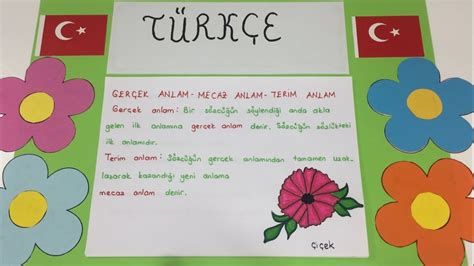 TÜRKÇE
GERÇEK ANLAM - MECAZ ANLAM - TERİM ANLAM
Gerçek anlam: Bir sözcüğün söylendiği anda akla
gelen ilk anlamına gerçek anlam denir. Sözcüğün sözlükteki
ilk anlamıdır.
Terim anlam: Sözcüğün gerçek anlamından tamamen uzak-
laşarak kazandığı yeni anlama
mecaz anlam denir.
çiçek